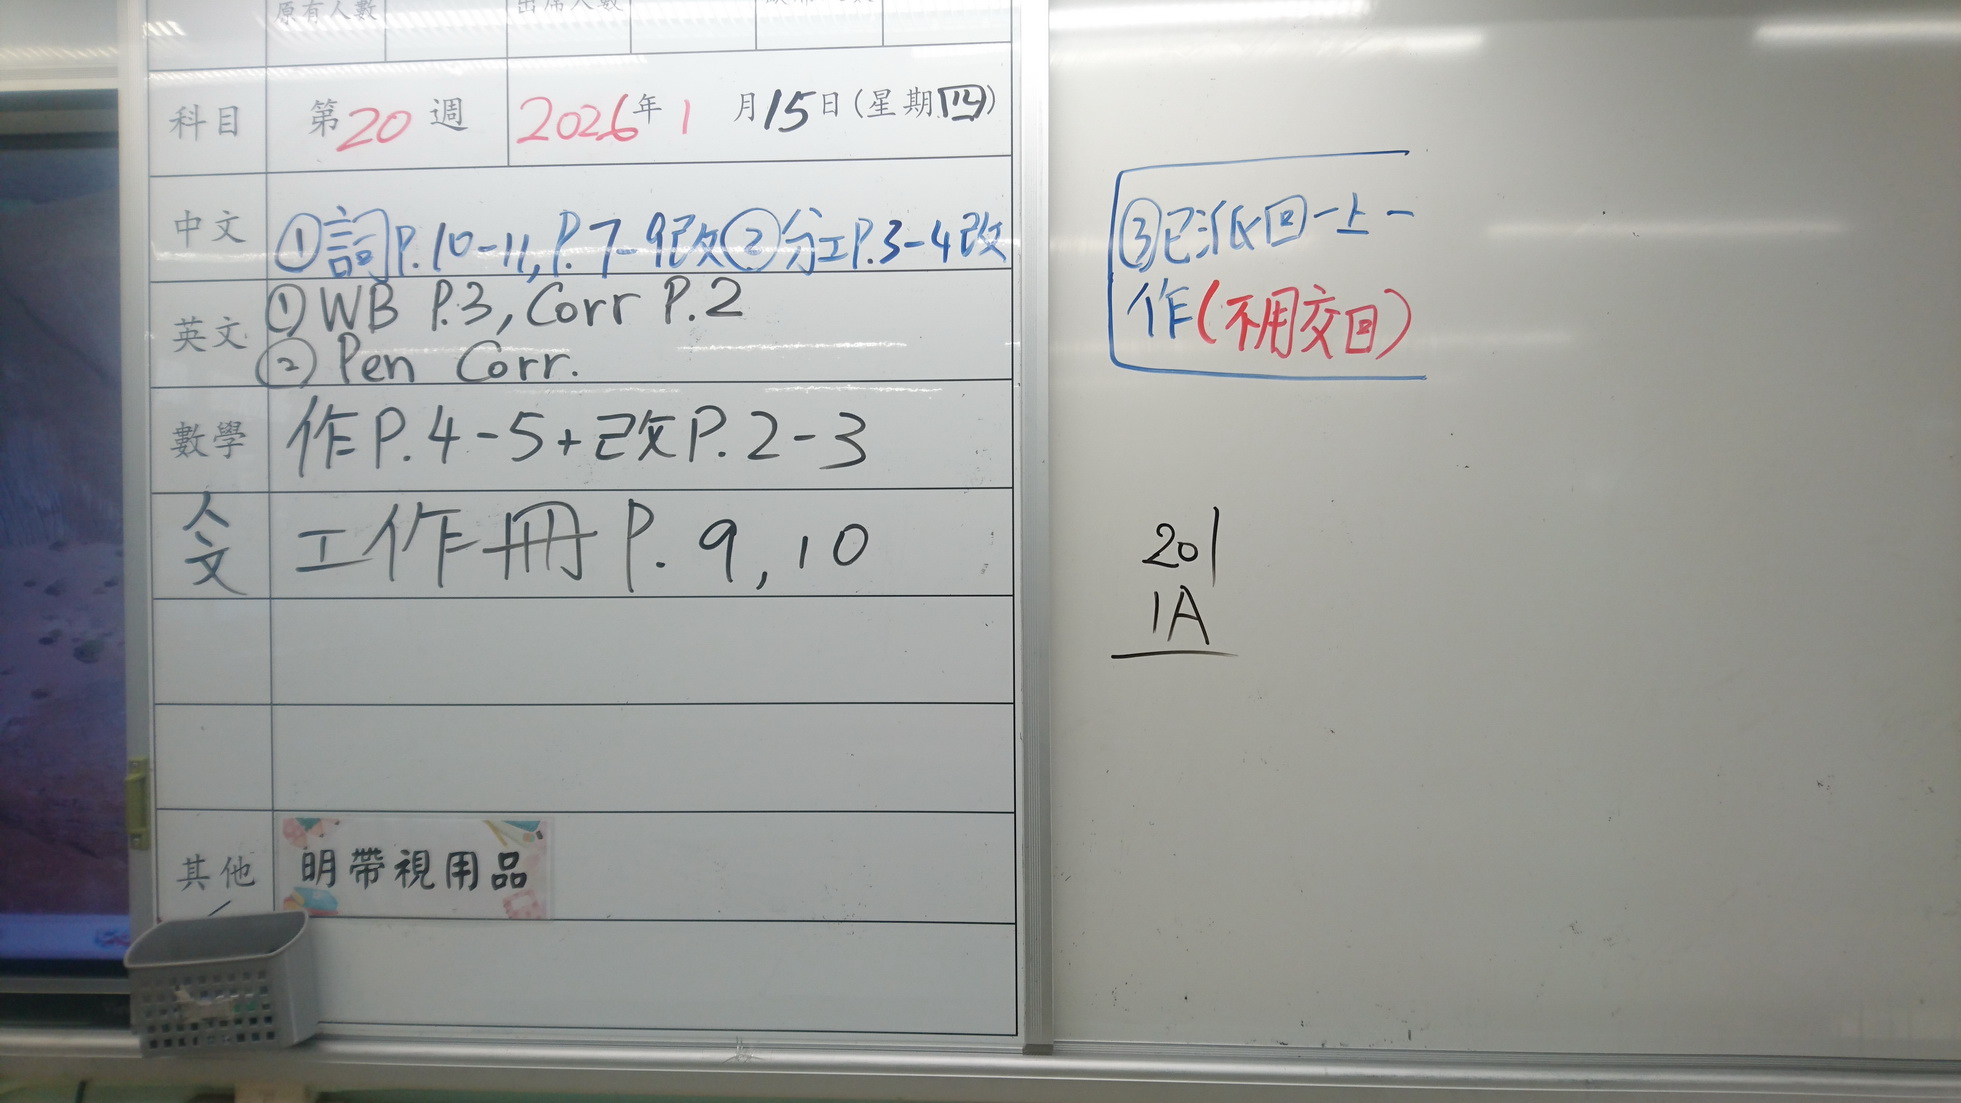 原有人數 出席人數
科目 第20週 2026年1月15日(星期四)
中文 ①詞P.10-11,P.7-9改②分工P.3-4改
英文 ①WB P.3, Corr P.2
②Pen Corr.
數學 作P.4-5+改P.2-3
人文 工作冊P.9,10
其他 明帶視用品
③已派回一上一
作(不用交回)
201
1A